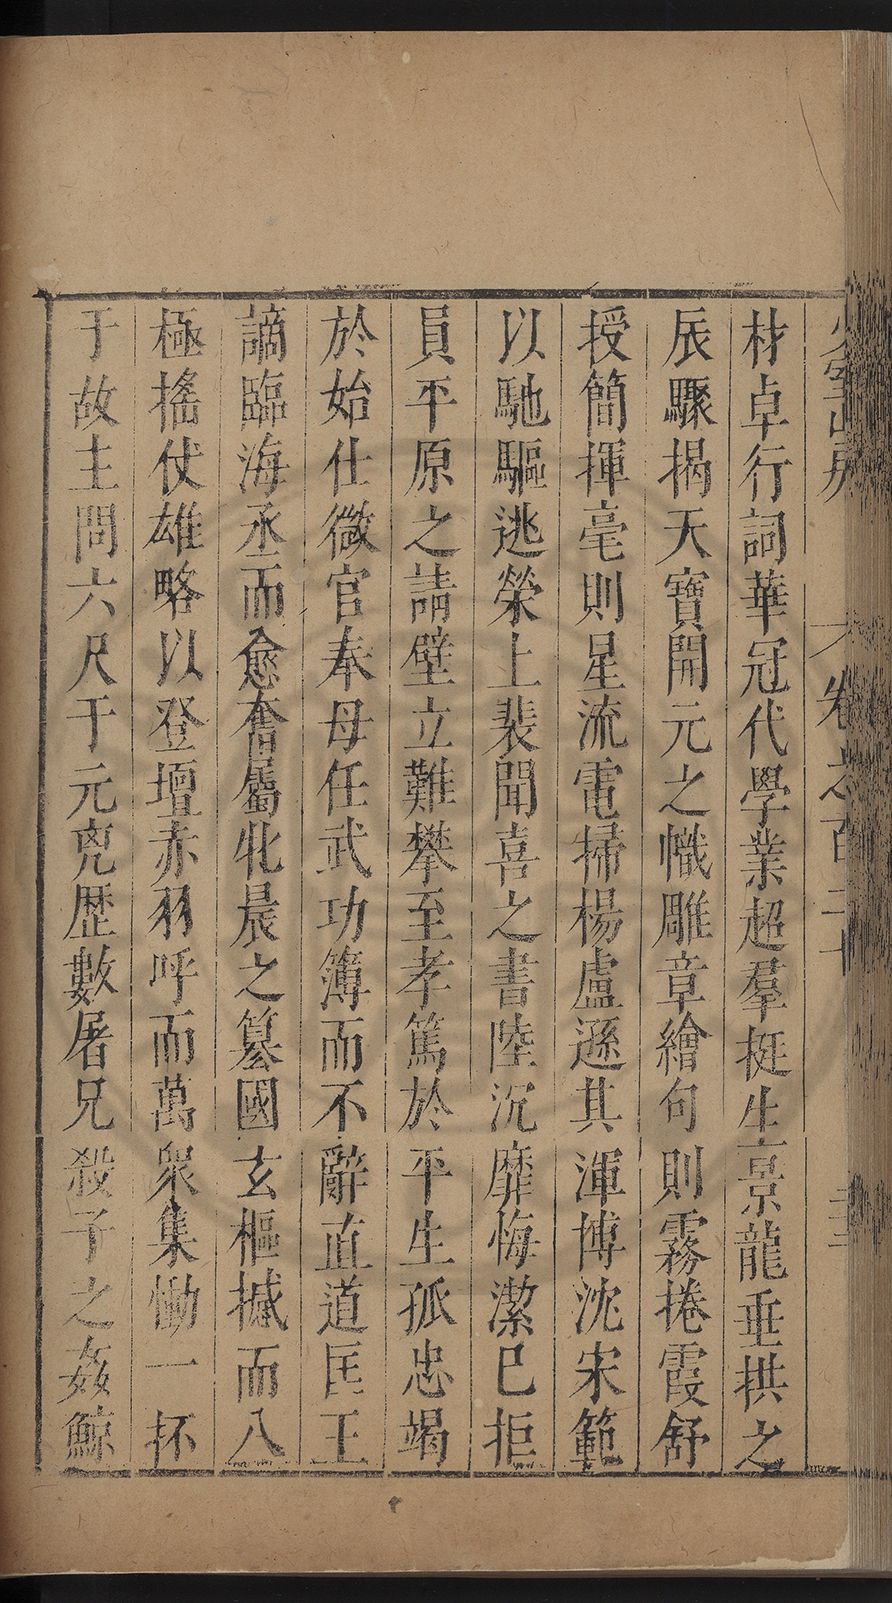 少室山房
卷之百二十
材卓行詞華冠代學業超羣挺生景龍垂拱之
辰驟揭天寶開元之幟雕章繪句則霧捲霞舒
授簡揮毫則星流電掃楊盧遜其渾博沈宋範
以馳驅逃榮上裴聞喜之書陸沉靡悔潔巳拒
員平原之請壁立難攀至孝篤於平生孤忠竭
於始仕微官奉母任武功簿而不辭直道匡王
謫臨海丞而愈奮屬牝晨之簒國玄樞撼而八
極搖仗雄略以登壇赤羽呼而萬衆集慟一抔
于故主問六尺于元兇歷數屠兄殺子之姦鯨